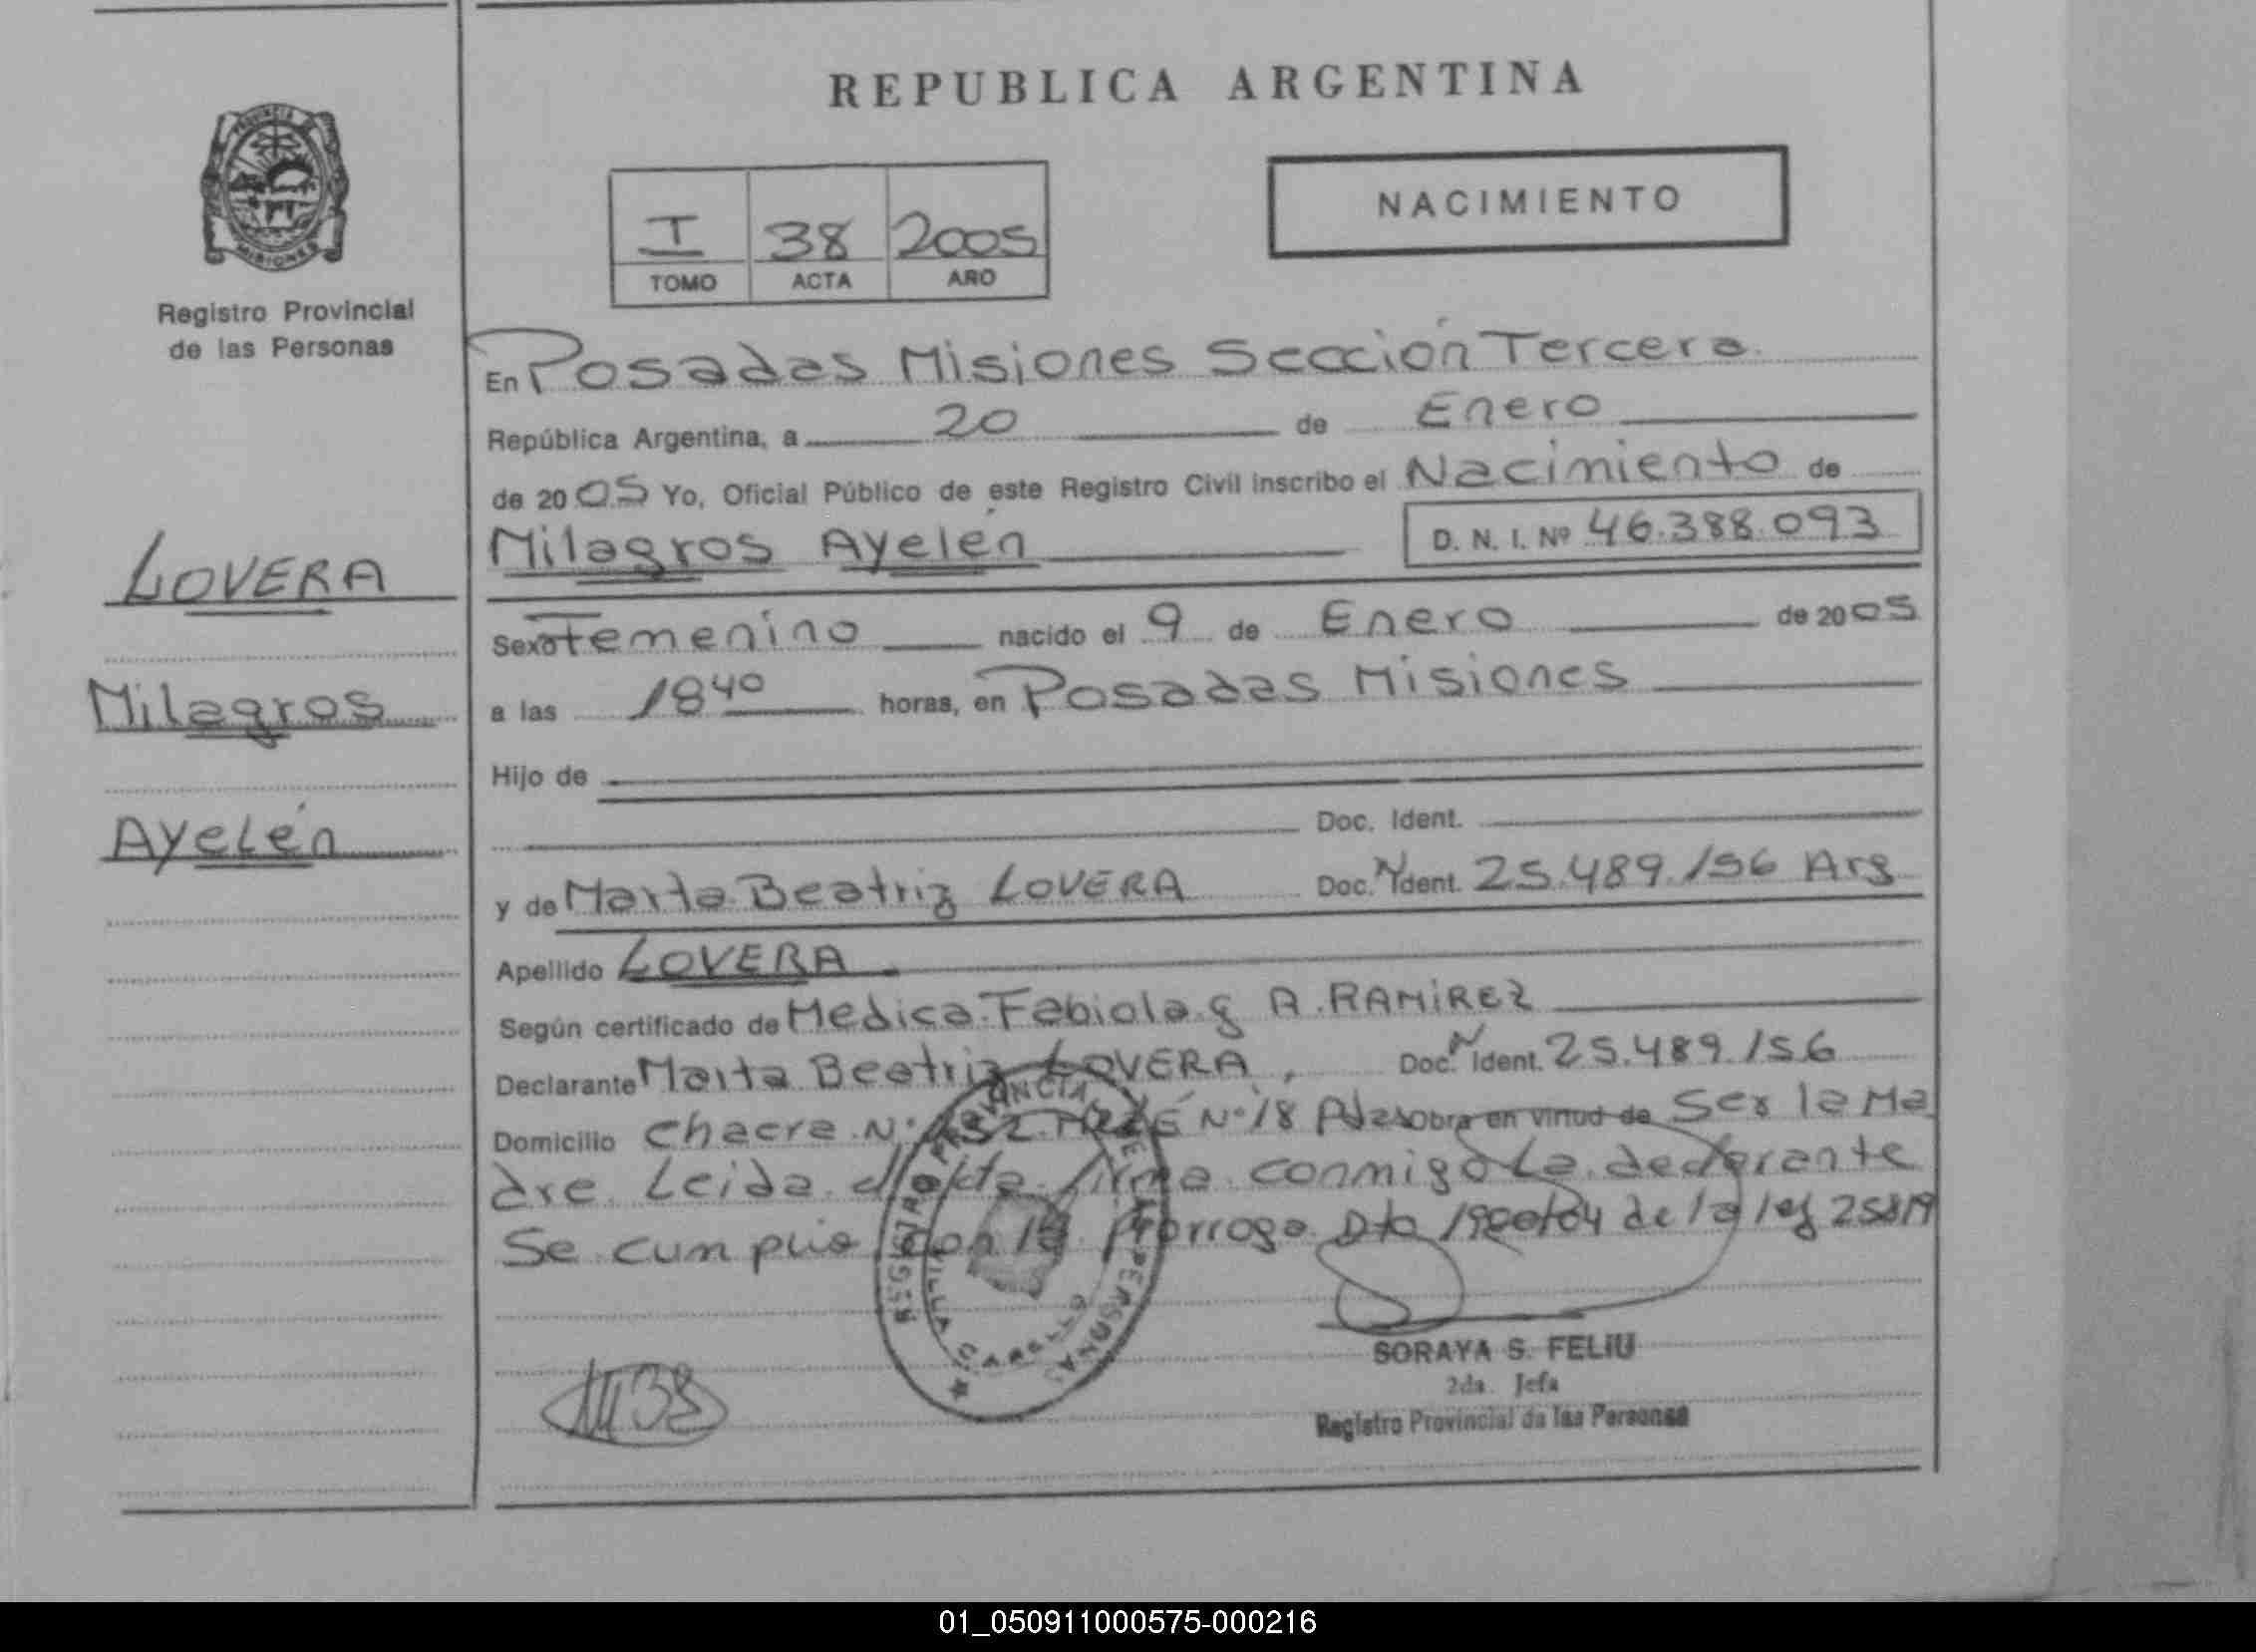 REPUBLICA ARGENTINA
PROVINCIA DE
MISIONES
Registro Provincial
de las Personas
NACIMIENTO
I 38 2005
TOMO ACTA AÑO
En Posadas Misiones Sección Tercera
República Argentina, a 20 de Enero
de 2005 Yo, Oficial Público de este Registro Civil inscribo el Nacimiento de
Milagros Ayelén D. N. I. Nº 46.388.093
LOVERA
Milagros
Ayelén
Sexo Femenino nacido el 9 de Enero de 2005
a las 18 40 horas, en Posadas Misiones
Hijo de
Doc. Ident.
y de Marta Beatriz LOVERA Doc. N Ident. 25.489.156 Arg
Apellido LOVERA
Según certificado de Medica. Fabiola A. RAMIREZ
Declarante Marta Beatriz LOVERA, Doc. N Ident. 25.489.156
Domicilio Chacra Nº N° 18 Pdas obra en virtud de Ser la Ma
dre. Leida el Acta firma conmigo La declarante
Se cumplio con la Prorroga Dto de la ley
REGISTRO PROVINCIAL DE PERSONAS
VILLA CABELLO
38
SORAYA S. FELIU
2da. Jefa
Registro Provincial de las Personas
01_050911000575-000216